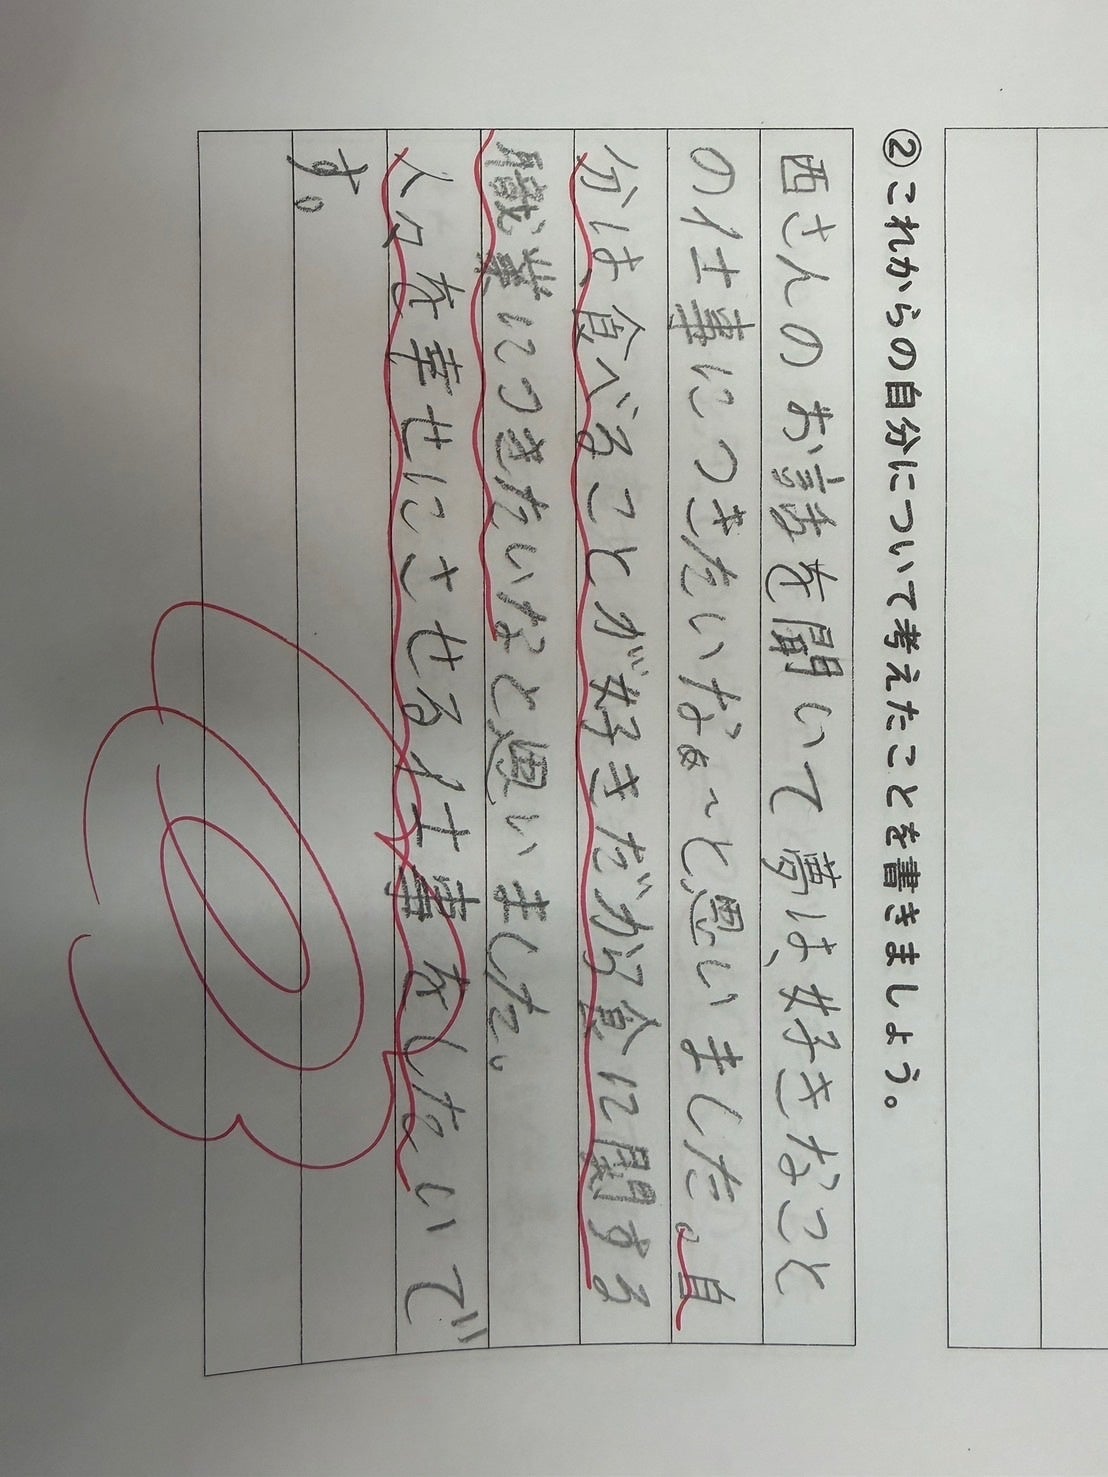 ②これからの自分について考えたことを書きましょう。
西さんのお話を聞いて夢は、好きなこと
の仕事につきたいなぁ~と思いました。自
分は、食べることが好きだから食に関する
職業につきたいなと思いました。
人々を幸せにさせる仕事をしたいで
す。